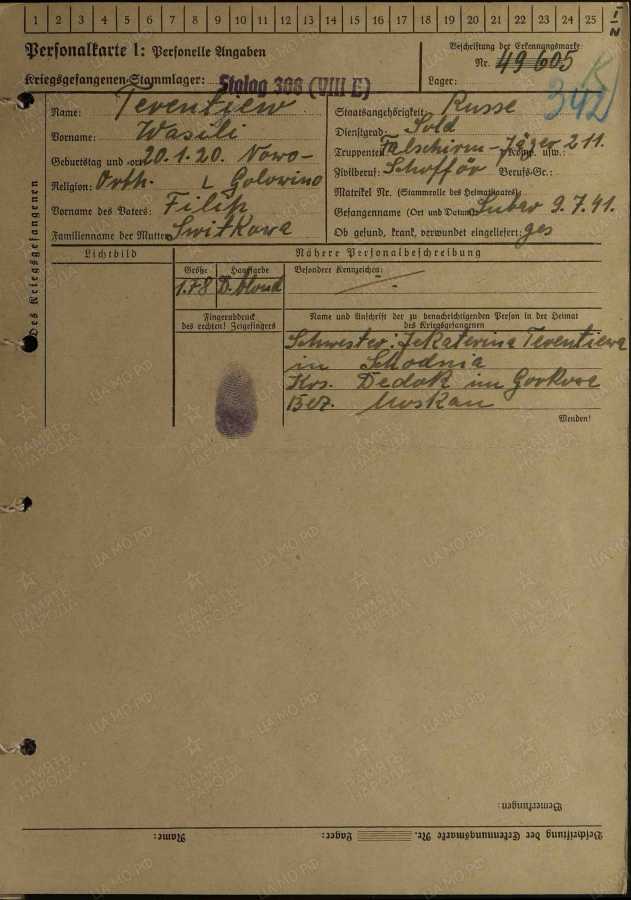 1 2 3 4 5 6 7 8 9 10 11 12 13 14 15 16 17 18 19 20 21 22 23 24 25
I/N
Personalkarte I: Personelle Angaben
Beschriftung der Erkennungsmarke
Nr. 49605
Kriegsgefangenen-Stammlager: Stalag 308 (VIII E)
Lager:
342
des Kriegsgefangenen
Name: Terentiew
Staatsangehörigkeit: Russe
Vorname: Wasili
Dienstgrad: Sold
Geburtstag und -ort 20.1.20. Nowo-
Truppenteil: Falschirm-Jäger 211. Komp. usw.:
Religion: Orth. Golowino
Zivilberuf: Schofför Berufs-Gr.:
Matrikel Nr. (Stammrolle des Heimatstaates):
Vorname des Vaters: Filip
Gefangenname (Ort und Datum): 9.7.41.
Familienname der Mutter: Switkowa
Ob gesund, krank, verwundet eingeliefert: ges
Lichtbild
Nähere Personalbeschreibung
Größe Haarfarbe Besondere Kennzeichen:
1.78 D. blond -
Fingerabdruck
des rechten! Zeigefingers
Name und Anschrift der zu benachrichtigenden Person in der Heimat
des Kriegsgefangenen
Schwester: Jekaterina Terentiewa
in Schodnia
Krs. Dedok im Gorkowe
Bez. Moskau
Wenden!
Bemerkungen:
Beschriftung der Erkennungsmarke Nr. Lager: Name:
ПАМЯТЬ НАРОДА
ЦАМО.РФ